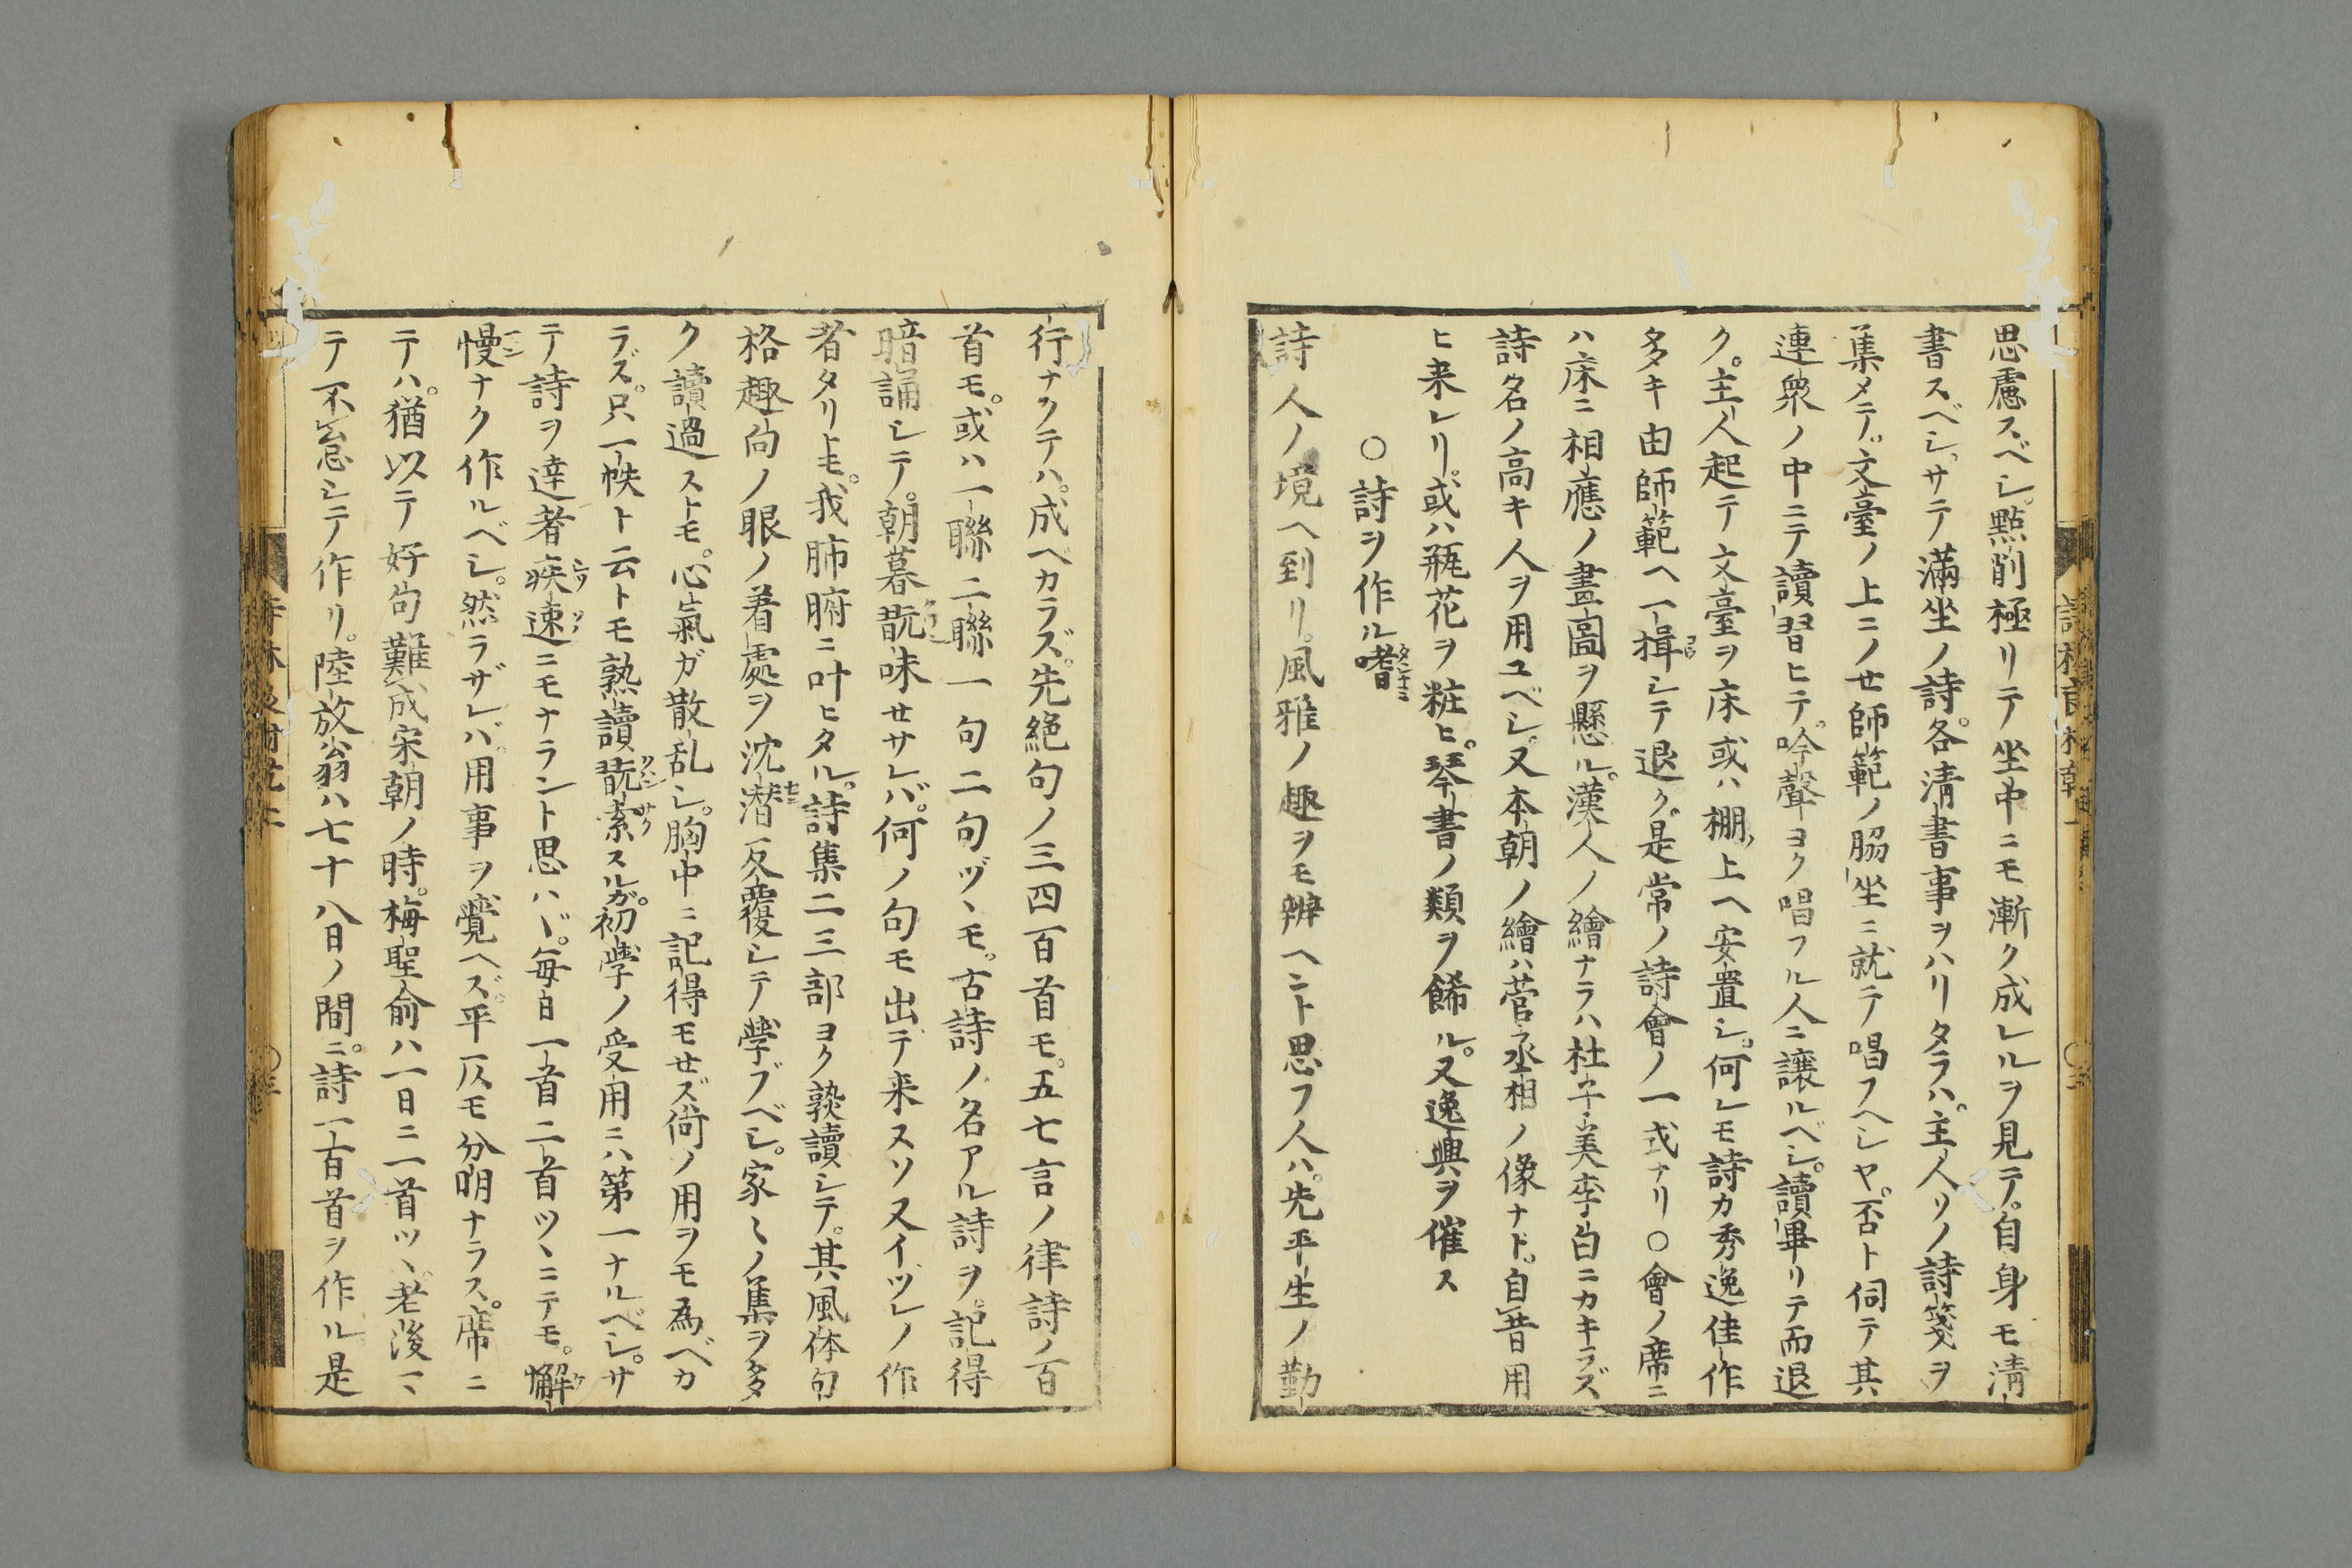 思慮スベシ。點削極リテ坐中ニモ漸ク成レルヲ見テ。自身モ淸
書スベシ。サテ滿坐ノ詩。各淸書事ヲハリタラハ。主人ソノ詩箋ヲ
集メテ。文臺ノ上ニノせ師範ノ脇坐ニ就テ唱フヘシヤ。否ト伺テ其
連衆ノ中ニテ讀習ヒテ。吟聲ヨク唱フル人ニ讓ルベシ。讀畢リテ而退
ク。主人起テ文臺ヲ床或ハ棚上ヘ安置シ。何レモ詩カ秀逸佳作
多キ由師範ヘ一揖シテ退ク。是常ノ詩會ノ一式ナリ○會ノ席ニ
ハ床ニ相應ノ畫圖ヲ懸ル。漢人ノ繪ナラハ杜子美李白ニカキラズ
詩名ノ高キ人ヲ用ユベシ。又本朝ノ繪ハ菅丞相ノ像ナド。自昔用
ヒ来レリ。或ハ瓶花ヲ粧ヒ。琴書ノ類ヲ餙ル。又逸興ヲ催ス
○詩ヲ作ル嗜
詩人ノ境ヘ到リ。風雅ノ趣ヲモ辨ヘント思フ人ハ。先平生ノ勤
行ナクテハ。成ベカラズ。先絶句ノ三四百首モ。五七言ノ律詩ノ百
首モ。或ハ一聯二聯一句二句ヅヽモ。古詩ノ名アル詩ヲ。記得
暗誦シテ。朝暮翫味せサレバ。何ノ句モ出テ来スソ又イツレノ作
者タリトモ。我肺腑ニ叶ヒタル。詩集二三部ヨク熟讀シテ。其風体句
格趣向ノ眼ノ着處ヲ沈潜反覆シテ學ブベシ。家〻ノ集ヲ多
ク讀過ストモ。心氣ガ散乱シ。胸中ニ記得モせズ尙ノ用ヲモ爲ベカ
ラズ。只一帙ト云トモ熟讀翫索スルガ。初學ノ受用ニハ第一ナルベシ。サ
テ詩ヲ達者疾速ニモナラント思ハヾ。毎日一首二首ツヽニテモ。懈
慢ナク作ルベシ。然ラザレバ。用事ヲ覺ヘズ。平仄モ分明ナラス。席ニ
テハ。猶以テ好句難成宋朝ノ時。梅聖俞ハ一日ニ一首ツヽ。老後マ
テ不怠シテ作リ。陸放翁ハ七十八日ノ間ニ。詩一百首ヲ作ル是